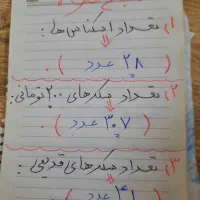 ۱) تعداد اسکناس‌ها:
( ۲۸ عدد )
۲) تعداد سکه‌های ۲۰۰ تومانی:
( ۳۰۷ عدد ) .
۳) تعداد سکه‌های قدیمی:
۴۱ عدد